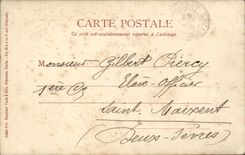 CARTE POSTALE
Ce côté est exclusivement réservé à l'adresse.
Monsieur Gilbert Piercy
1ère Cie Elève-Officier
Saint-Maixent
(Deux-Sèvres)